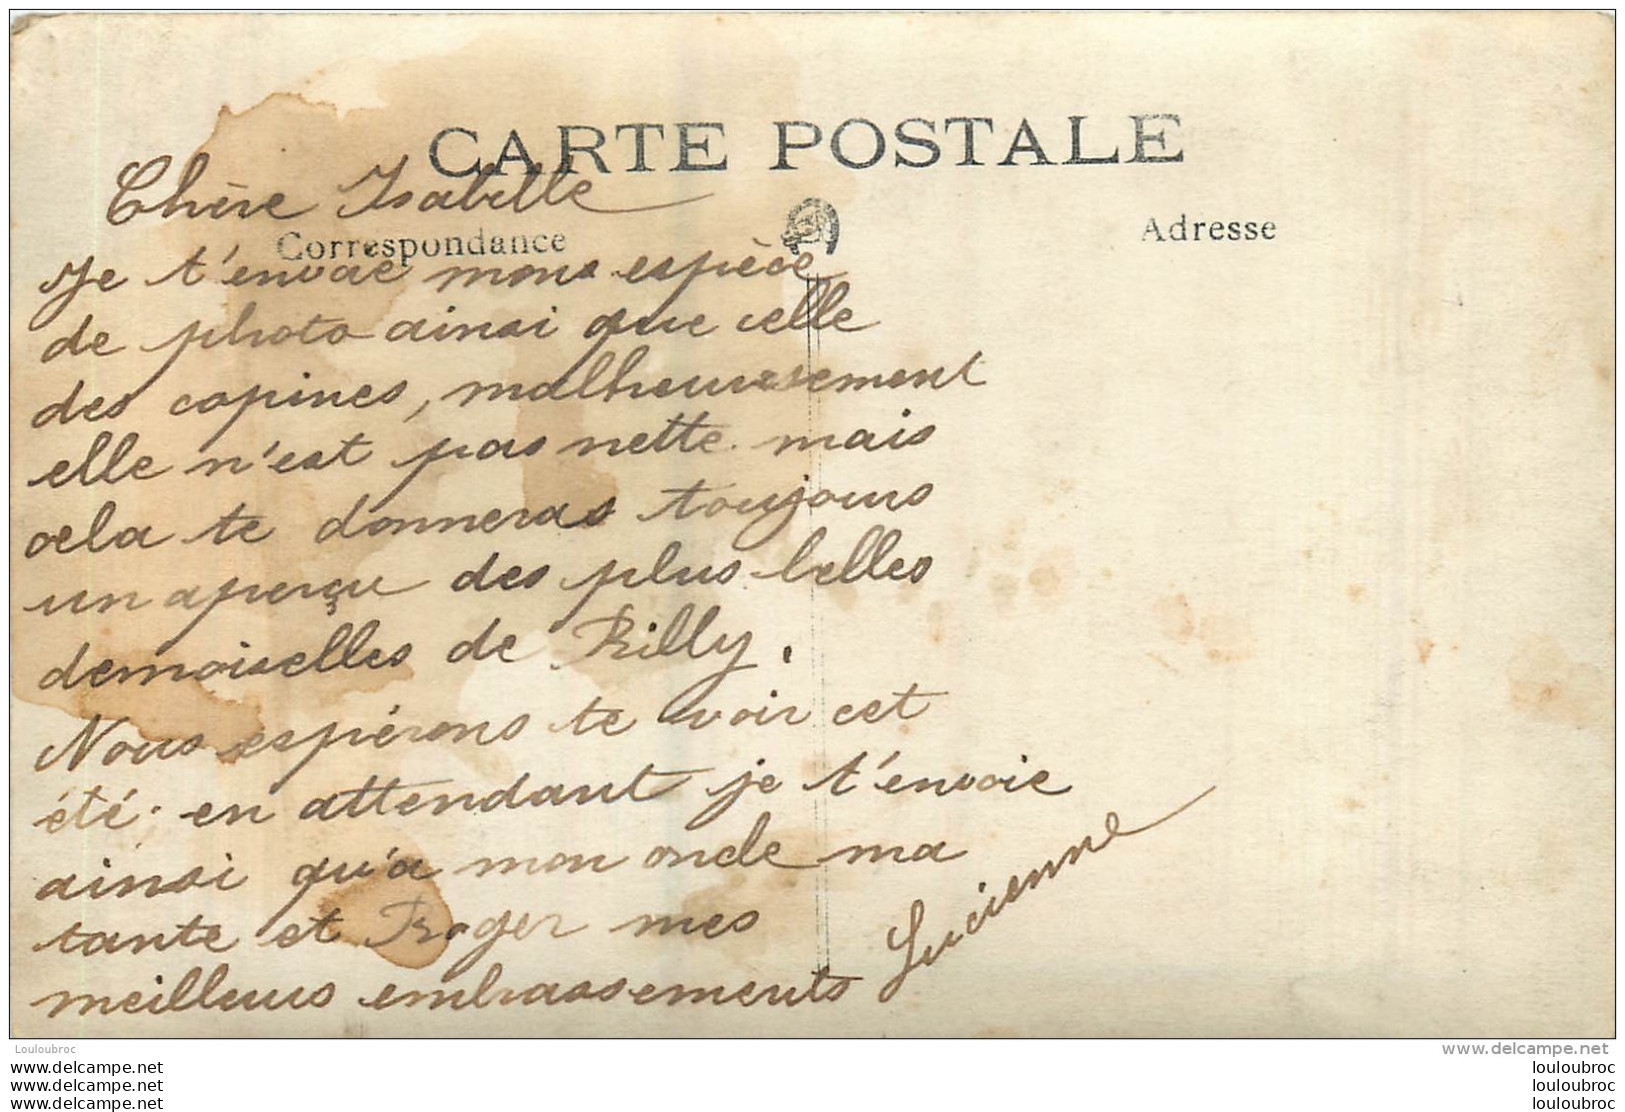 CARTE POSTALE
Chère Isabelle
Correspondance
Adresse
Je t'envoie mons espèce
de photo ainsi que celle
des copines, malheuresement
elle n'est pas nette mais
cela te donneras toujours
un aperçu des plus belles
demoiselles de Rilly.
Nous espérons te voir cet
été. en attendant je t'envoie
ainsi qu'a mon oncle ma
tante et Roger mes
meilleurs embrassements
Lucienne
Louloubroc
www.delcampe.net
louloubroc louloubroc
louloubroc louloubroc
louloubroc louloubroc